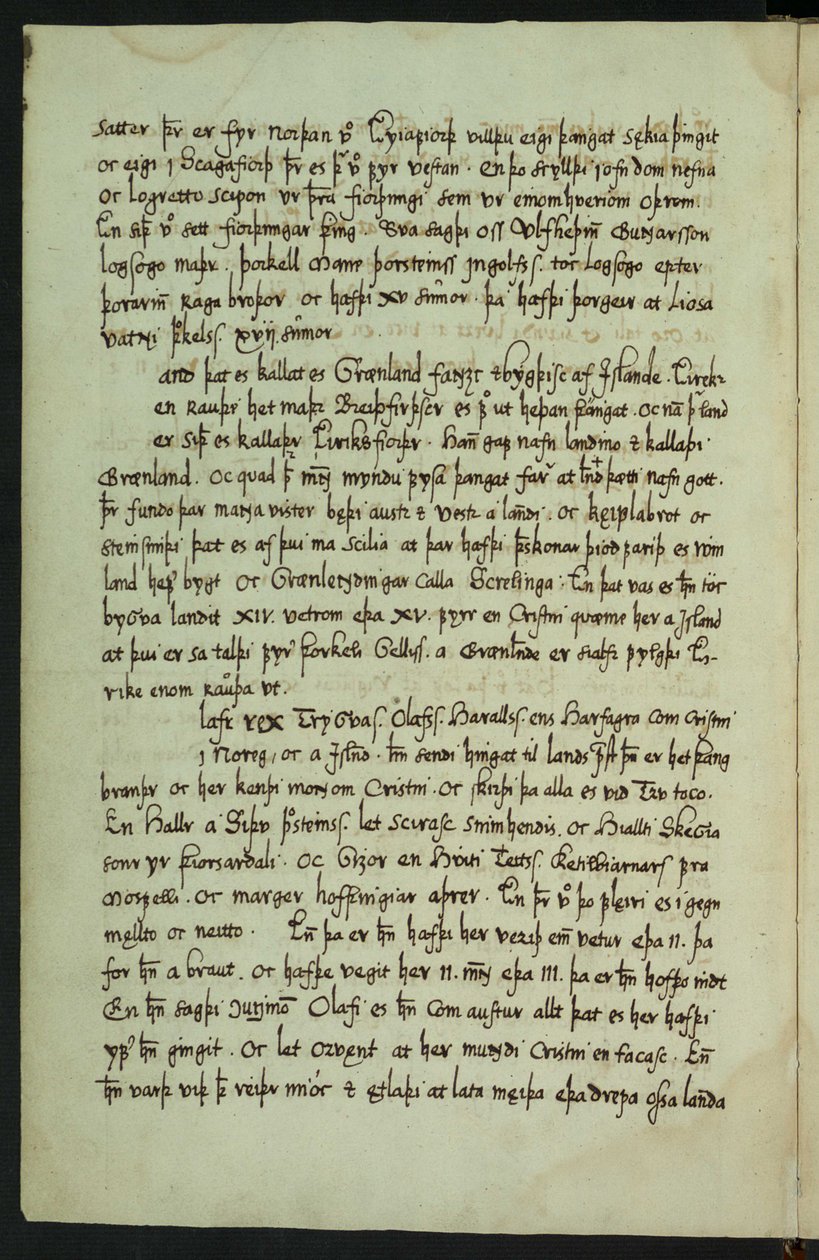 satter þr er fyr Norþan vo Eyiafiorþ villþu eigi þangat sękia þingit
oc eigi j Scagafiorþ þr es þr vo fyr vestan . en þo scylldi jofn dom nefna
oc logretto scipon ur þra fiorþungi sem ur einom hveriom oþrom.
En siþ vo sett fiorþungar þing . Sva sagþi oss Ulfheþin Gunnarsson
logsogo maþr . þorkell Mane þorsteinss Jngolfss. toc logsogo epter
þorarin Raga broþor oc hafþi XV sumor . þa hafþi þorgeir at Liosa
vatni þokelss. xvij. sumor
and þat es kallat es Grænland fannzc &bygþisc af Jslande . Eirekr
en rauþe het maþr Breiþfirþscr es fo ut heþan þangat . oc na þr land
er siþ es kallaþr Eiriksfiorþr . Han gaf nafn landino & kallaþi
Grænland . oc quad þ men myndu fysa þangat far at lnd þætti nafn gott .
þr fundo þar manna vister bęþi austr & vestr a landi . oc kęiplabrot oc
steinsmiþi þat es af þui ma scilia at þar hafþi þskonar þiod fariþ es win
land hefr bygt oc Grænlendingar calla Screlinga . En þat vas es hn toc
bygva landit XIV. vetrom eþa XV. fyrr en Cristni quæme her a Jsland
at þui er sa talþi fyr þorkeli Gelliss. a Grænlnde er sialfr fylgþi Ei-
rike enom rauþa ut .
lafr rex Tryggvas. Olafss. Haralldss. ens Harfagra com Cristni
j Noreg , oc a Jslnd . hn sendi hingat til lands pst þn er het þang
branþr oc her kenþi monnom Cristni . oc skirþi þa alla es vid Tru toco .
En Hallr a Siþu þosteinss. let scirasc snimhendis . oc Hiallti Skegia
sonr yr þiorsardali . oc Gizor en Hviti Teitss. Ketilbiarnars fra
Mosfelli . oc marger hoffþingiar aþrer . En þr vo þo flęiri es i gegn
męllto oc neitto . En þa er hn hafþi her veriþ ein vetur eþa II. þa
for hn a braut . oc hafþe vegit her II. men eþa III. þa er hn hofþo nidt
En hn sagþi konungino Olafi es hn com austur allt þat es her hafþi
yfr hn gingit . oc let orvęnt at her mundi Cristni en tacasc . En
hn varþ viþ þ reiþr mióc & ętlaþi at lata męiþa eþa drepa ossa landa